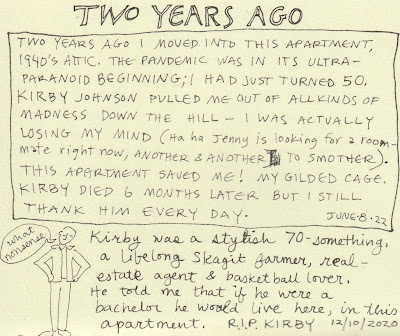 TWO YEARS AGO
TWO YEARS AGO I MOVED INTO THIS APARTMENT,
1940's ATTIC. THE PANDEMIC WAS IN ITS ULTRA-
PARANOID BEGINNING; I HAD JUST TURNED 50.
KIRBY JOHNSON PULLED ME OUT OF ALL KINDS OF
MADNESS DOWN THE HILL — I WAS ACTUALLY
LOSING MY MIND (Ha ha Jenny is looking for a room-
mate right now, ANOTHER & ANOTHER TO SMOTHER).
THIS APARTMENT SAVED ME! MY GILDED CAGE.
KIRBY DIED 6 MONTHS LATER BUT I STILL
THANK HIM EVERY DAY.
JUNE·8·22
what
nonsense
Kirby was a stylish 70-something,
a lifelong Skagit farmer, real-
estate agent & basketball lover.
He told me that if he were a
bachelor he would live here, in this
apartment. R.I.P. KIRBY 12/10/2020